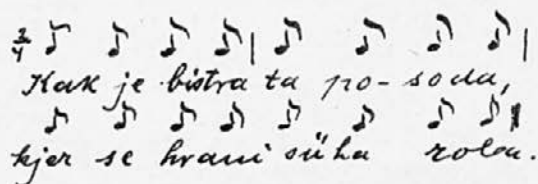 2/4
Kak je bistra ta po-soda,
kjer se hrani süha roba.